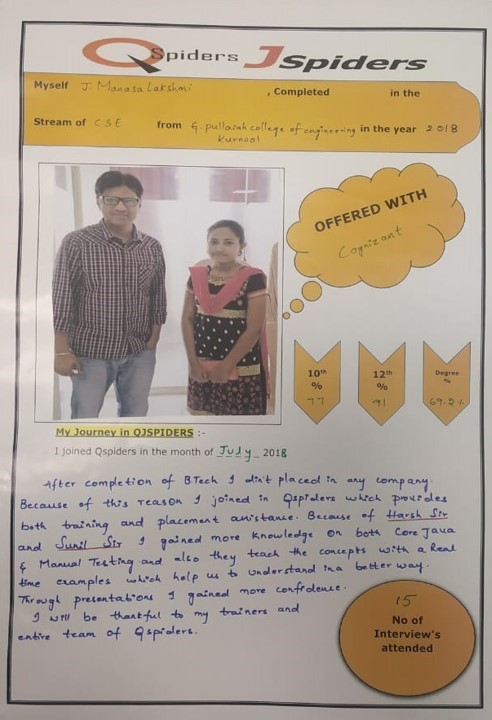 QSpiders JSpiders
Myself J. Manasa Lakshmi , Completed in the
Stream of CSE from G. pullaiah college of engineering in the year 2018
Kurnool
OFFERED WITH
Cognizant
10th
%
77
12th
%
91
Degree
%
69.2%
My Journey in QJSPIDERS :-
I joined Qspiders in the month of July 2018
After completion of B.Tech I din't placed in any company.
Because of this reason I joined in Qspiders which provides
both training and placement assistance. Because of Harsh Sir
and Sunil Sir I gained more knowledge on both Core Java
& Manual Testing and also they teach the concepts with a Real
time examples which help us to understand in a better way.
Through presentations I gained more confidence.
I will be thankful to my trainers and
entire team of Qspiders.
15
No of
Interview's
attended